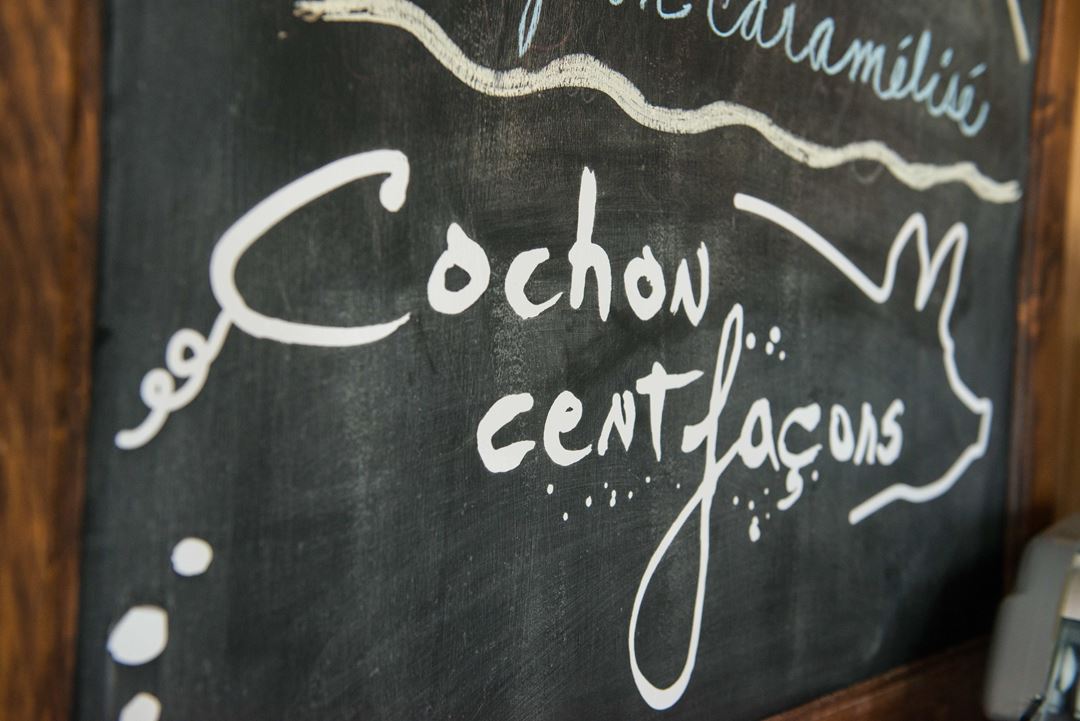 caramélisé
Cochon
cent façons